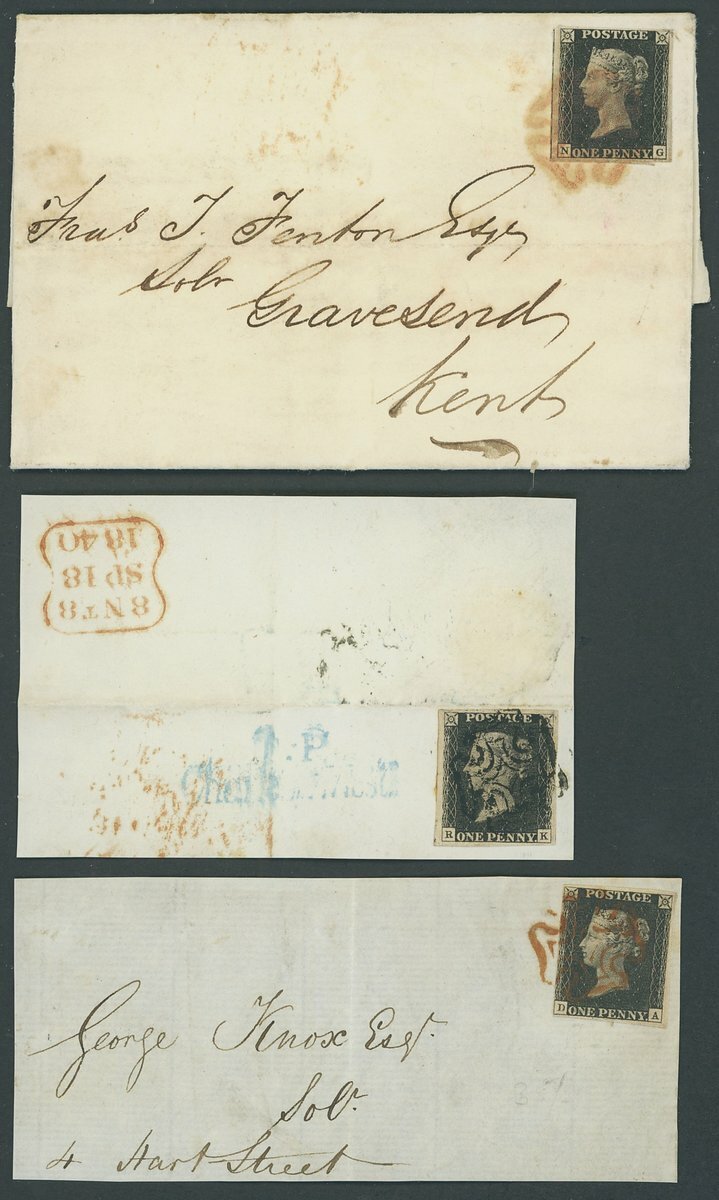 POSTAGE
N ONE PENNY G
Fras. T. Fenton Esqr
Solr
Gravesend
Kent
8 NT 8
SP 18
1840
T.P.
POSTAGE
R ONE PENNY K
POSTAGE
D ONE PENNY A
George Knox Esqr.
Solr.
4 Hart Street